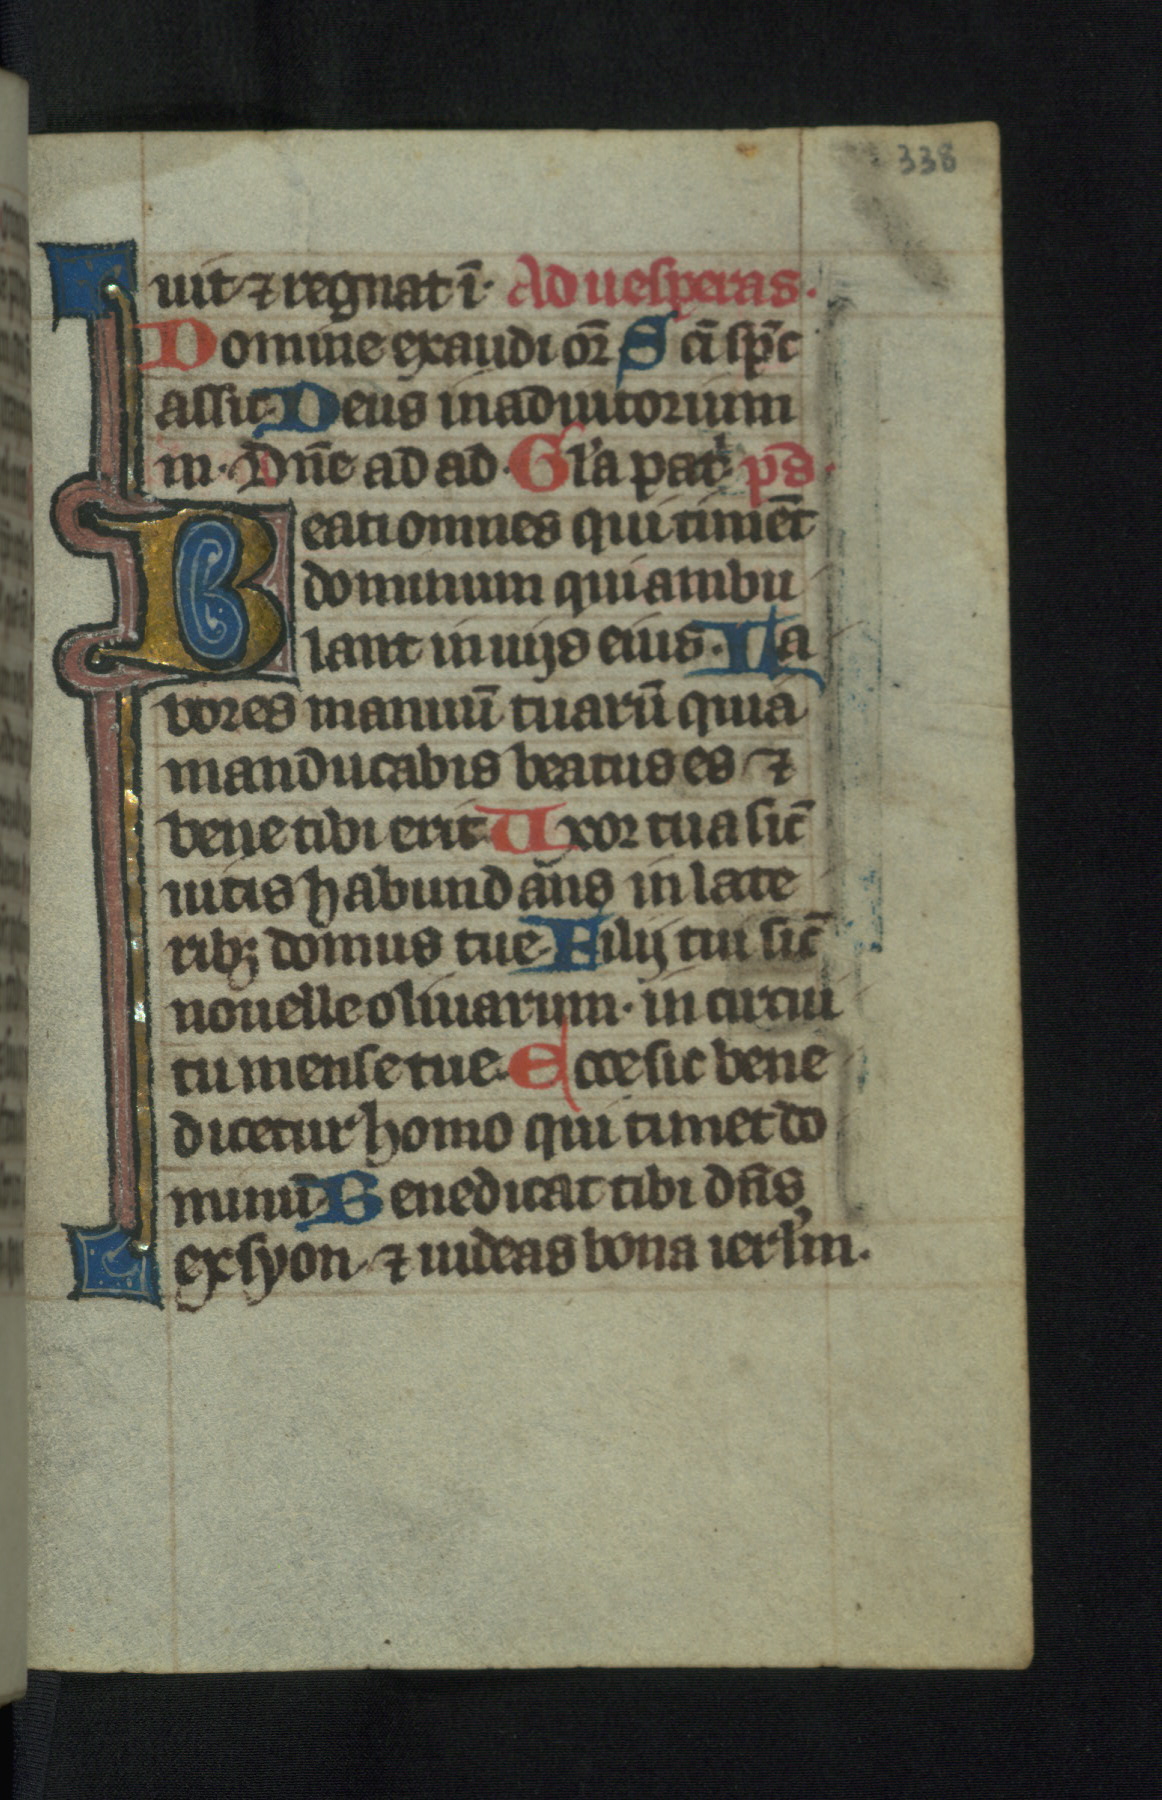 338
uit ⁊ regnat ī· Ad uesperas·
Domine exaudi or̄ S cī sp̄c
assit· Deus in adiutorium
m· Dn̄e ad ad· Gl'a pat' pˢ·
Beati omnes qui timēt
dominum qui ambu
lant in uijs eius· La
bores manuū tuarū quia
manducabis beatus es ⁊
bene tibi erit· Uxor tua sic̄
uitis habundans in late
ribꝫ domus tue· Filij tui sic̄
nouelle oliuarum· in circui
tu mense tue· Ecce sic bene
dicetur homo qui timet do
minū· Benedicat tibi dn̄s
ex syon ⁊ uideas bona ierl'm·